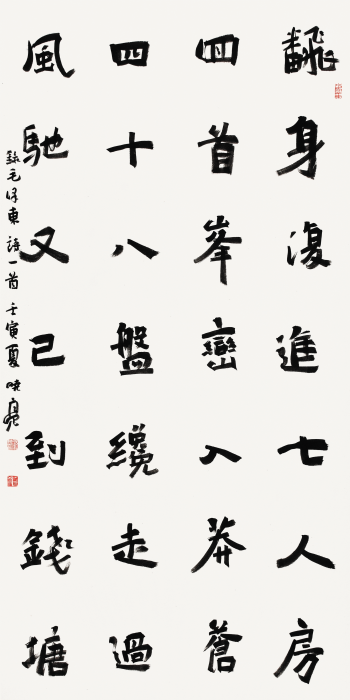 翻身復進七人房
回首峯巒入莽蒼
四十八盤纔走過
風馳又已到錢塘
錄毛澤東詩一首壬寅夏曉亮